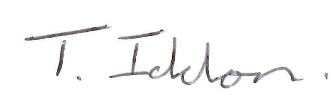 T. Iddon.